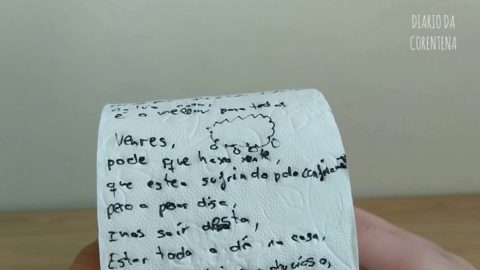 DIARIO DA
CORENTENA
e o mellor para todos
Venres,
pode que haxa xente,
que estea sufrindo polo confinamento
pero a pesar diso,
imos saír desta,
Estar todo o día na casa,